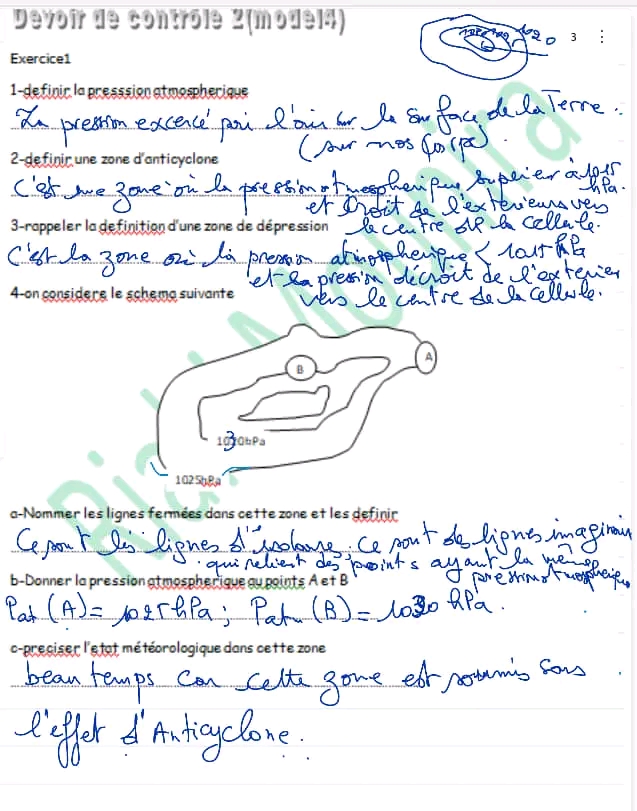 Devoir de contrôle 2(model4)
3
Exercice1
1-definir la presssion atmospherique
La pression excercé par l'air sur la surface de la Terre.
(sur nos corps)
2-definir une zone d'anticyclone
C'est une zone où la pression atmospherique superieur à 1015 hPa.
et croit de l'exterieurs vers
3-rappeler la definition d'une zone de dépression
le centre de la cellule.
C'est la zone où la pression atmospherique < 1015 hPa
et la pression décroit de l'exterieur
4-on considere le schema suivante
vers le centre de la cellule.
A
B
1030hPa
1025hPa
Riahi Mounira
a-Nommer les lignes fermées dans cette zone et les definir
Ce sont les lignes d'isobare, ce sont des lignes imaginaires
qui relient des points ayant la même
b-Donner la pression atmospherique au points A et B
pression atmospherique
Pat (A) = 1025 hPa ; Patm (B) = 1030 hPa.
c-preciser l'etat météorologique dans cette zone
beau temps car cette zone est soumis sous
l'effet d'Anticyclone.